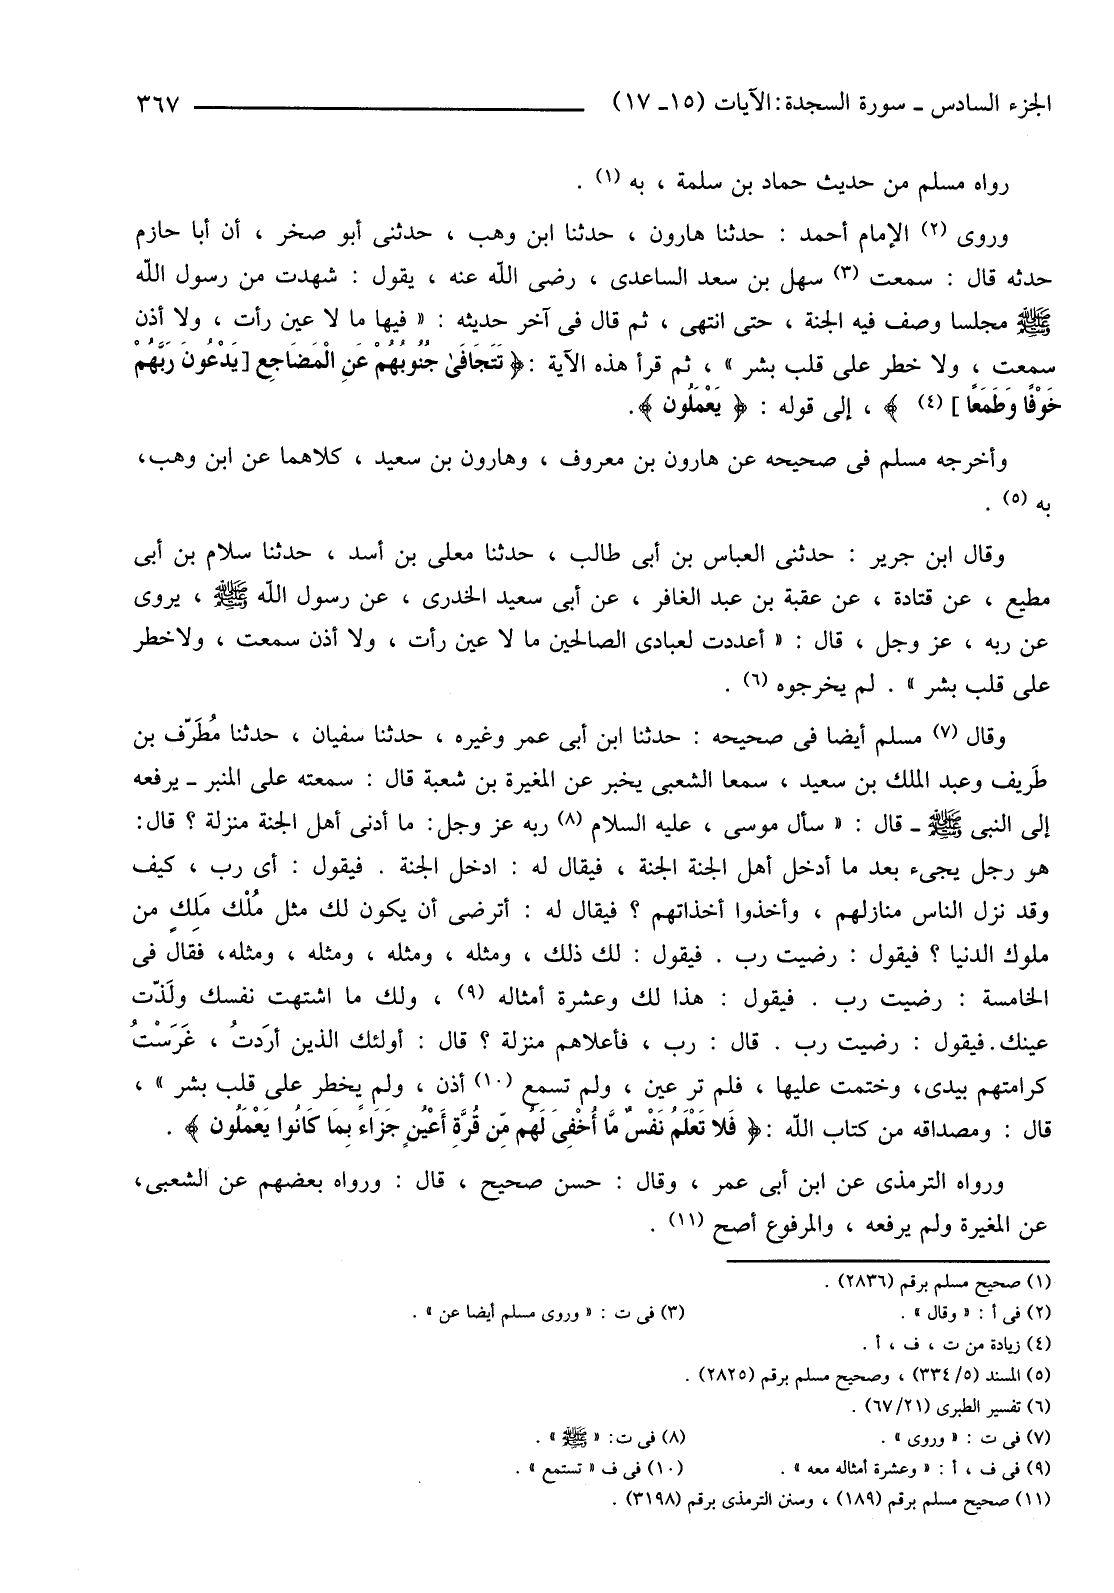 الجزء السادس ـ سورة السجدة: الآيات (١٥ـ ١٧) ٣٦٧
رواه مسلم من حديث حماد بن سلمة ، به (١) .
وروى (٢) الإمام أحمد : حدثنا هارون ، حدثنا ابن وهب ، حدثنى أبو صخر ، أن أبا حازم
حدثه قال : سمعت (٣) سهل بن سعد الساعدى ، رضى الله عنه ، يقول : شهدت من رسول الله
ﷺ مجلسا وصف فيه الجنة ، حتى انتهى ، ثم قال فى آخر حديثه : « فيها ما لا عين رأت ، ولا أذن
سمعت ، ولا خطر على قلب بشر » ، ثم قرأ هذه الآية :﴿ تَتَجَافَىٰ جُنُوبُهُمْ عَنِ الْمَضَاجِعِ [يَدْعُونَ رَبَّهُمْ
خَوْفًا وَطَمَعًا ] (٤) ﴾ ، إلى قوله : ﴿ يَعْمَلُون ﴾.
وأخرجه مسلم فى صحيحه عن هارون بن معروف ، وهارون بن سعيد ، كلاهما عن ابن وهب،
به (٥) .
وقال ابن جرير : حدثنى العباس بن أبى طالب ، حدثنا معلى بن أسد ، حدثنا سلام بن أبى
مطيع ، عن قتادة ، عن عقبة بن عبد الغافر ، عن أبى سعيد الخدرى ، عن رسول الله ﷺ ، يروى
عن ربه ، عز وجل ، قال : « أعددت لعبادى الصالحين ما لا عين رأت ، ولا أذن سمعت ، ولاخطر
على قلب بشر » . لم يخرجوه (٦) .
وقال (٧) مسلم أيضا فى صحيحه : حدثنا ابن أبى عمر وغيره ، حدثنا سفيان ، حدثنا مُطَرّف بن
طَريف وعبد الملك بن سعيد ، سمعا الشعبى يخبر عن المغيرة بن شعبة قال : سمعته على المنبر ـ يرفعه
إلى النبى ﷺ ـ قال : « سأل موسى ، عليه السلام (٨) ربه عز وجل: ما أدنى أهل الجنة منزلة ؟ قال:
هو رجل يجىء بعد ما أدخل أهل الجنة الجنة ، فيقال له : ادخل الجنة . فيقول : أى رب ، كيف
وقد نزل الناس منازلهم ، وأخذوا أخذاتهم ؟ فيقال له : أترضى أن يكون لك مثل مُلْك مَلِكٍ من
ملوك الدنيا ؟ فيقول : رضيت رب . فيقول : لك ذلك ، ومثله ، ومثله ، ومثله ، ومثله، فقال فى
الخامسة : رضيت رب . فيقول : هذا لك وعشرة أمثاله (٩) ، ولك ما اشتهت نفسك ولَذّت
عينك.فيقول : رضيت رب . قال : رب ، فأعلاهم منزلة ؟ قال : أولئك الذين أرَدتُ ، غَرَسْتُ
كرامتهم بيدى، وختمت عليها ، فلم تر عين ، ولم تسمع (١٠) أذن ، ولم يخطر على قلب بشر » ،
قال : ومصداقه من كتاب الله :﴿ فَلا تَعْلَمُ نَفْسٌ مَّا أُخْفِيَ لَهُم مِّن قُرَّةِ أَعْيُنٍ جَزَاءً بِمَا كَانُوا يَعْمَلُون ﴾ .
ورواه الترمذى عن ابن أبى عمر ، وقال : حسن صحيح ، قال : ورواه بعضهم عن الشعبى،
عن المغيرة ولم يرفعه ، والمرفوع أصح (١١) .
(١) صحيح مسلم برقم (٢٨٣٦) .
(٢) فى أ : « وقال » . (٣) فى ت : « وروى مسلم أيضا عن » .
(٤) زيادة من ت ، ف ، أ .
(٥) المسند (٥/ ٣٣٤) ، وصحيح مسلم برقم (٢٨٢٥) .
(٦) تفسير الطبرى (٢١/ ٦٧) .
(٧) فى ت : « وروى » . (٨) فى ت: « ﷺ » .
(٩) فى ف ، أ : « وعشرة أمثاله معه » . (١٠) فى ف « تستمع » .
(١١) صحيح مسلم برقم (١٨٩) ، وسنن الترمذى برقم (٣١٩٨) .